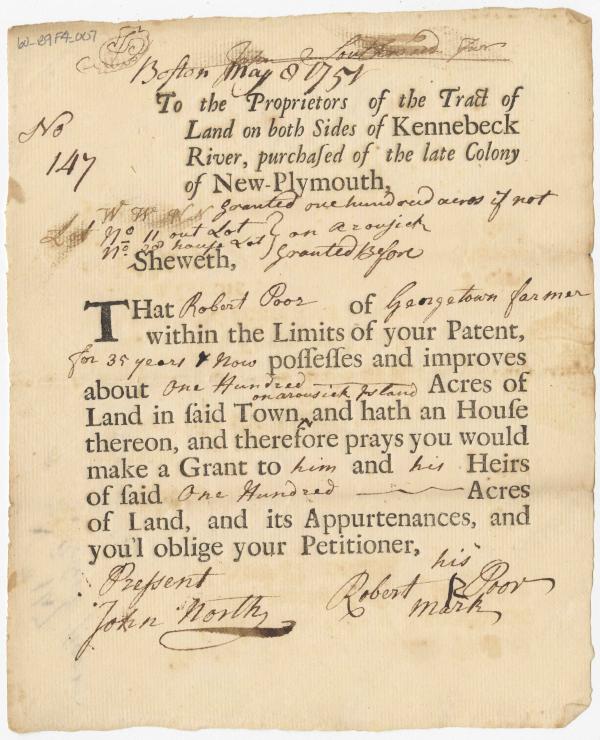 60-89F4-007
Boston May 8 1751
No
147
To the Proprietors of the Tract of
Land on both Sides of Kennebeck
River, purchaſed of the late Colony
of New-Plymouth,
granted one hundred acres if not
Lot No 11 out Lot } on arousick
No 28 house Lot } Granted Before
Sheweth,
THat Robert Poor of Georgetown farmer
within the Limits of your Patent,
for 35 years & Now poſſeſſes and improves
about One Hundred Acres of
on arousick Island
Land in ſaid Town, and hath an Houſe
thereon, and therefore prays you would
make a Grant to him and his Heirs
of ſaid One Hundred Acres
of Land, and its Appurtenances, and
you'l oblige your Petitioner,
Preſsent
John North
his
Robert R Poor
mark